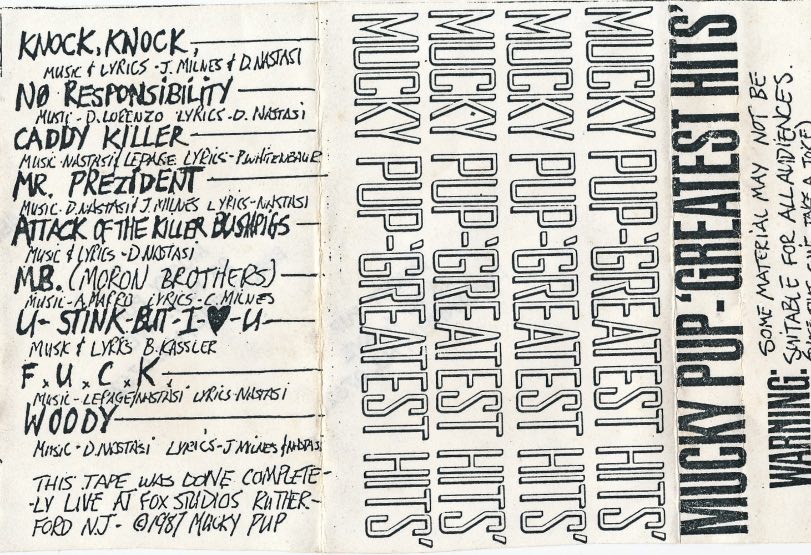 KNOCK, KNOCK,
MUSIC & LYRICS - J. MILNES & D. NASTASI
NØ RESPONSIBILITY
MUSIC - D. LORENZO LYRICS - D. NASTASI
CADDY KILLER
MUSIC - NASTASI & LEPAGE LYRICS -
MR. PREZIDENT
MUSIC - D. NASTASI & J. MILNES LYRICS - NASTASI
ATTACK OF THE KILLER BUSHPIGS
MUSIC & LYRICS - D NASTASI
M.B. (MORON BROTHERS)
MUSIC - A. MARRO LYRICS - C. MILNES
U- STINK-BUT-I-♥-U
MUSIC & LYRICS B. KASSLER
F.U.C.K.
MUSIC - LEPAGE/NASTASI LYRICS - NASTASI
WOODY
MUSIC - D. NASTASI LYRICS - J MILNES & NASTASI
THIS TAPE WAS DONE COMPLETE-
-LY LIVE AT FOX STUDIOS RUTHER-
FORD N.J. - ©1987 MUCKY PUP
MUCKY PUP-'GREATEST HITS'
MUCKY PUP-'GREATEST HITS'
MUCKY PUP-'GREATEST HITS'
MUCKY PUP-'GREATEST HITS'
MUCKY PUP-'GREATEST HITS'
WARNING: SOME MATERIAL MAY NOT BE
SUITABLE FOR ALL AUDIENCES.